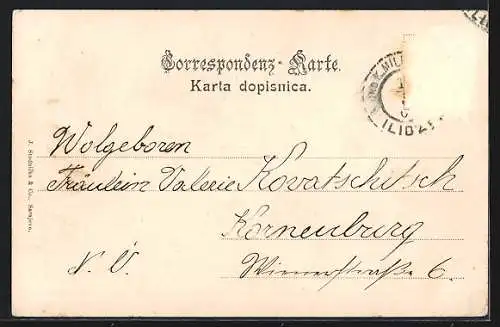 Correspondenz-Karte.
Karta dopisnica.
ILIDŽE
Wolgeboren
Fräulein Valerie Kovatschitsch
Korneuburg
N. Ö. Wienerstraße 6.
J. Studnička & Co., Sarajevo.